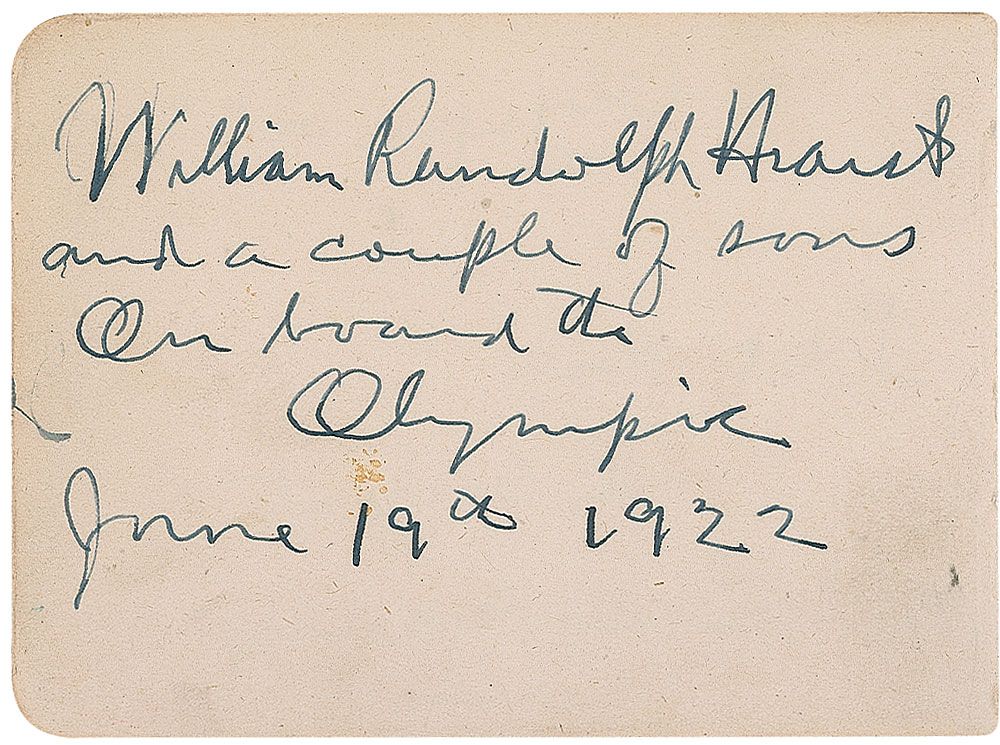 William Randolph Hearst
and a couple of sons
On board the
Olympic
June 19th 1922